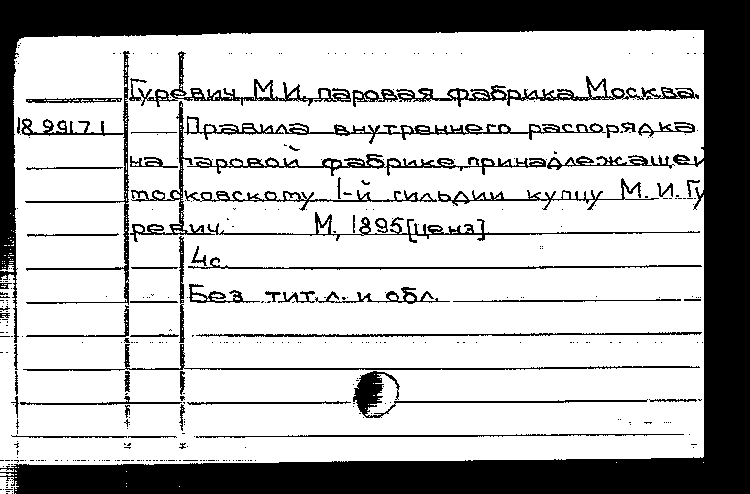 Гуревич, М.И., паровая фабрика. Москва.
18.99.17.1 Правила внутреннего распорядка
на паровой фабрике, принадлежащей
московскому 1-й гильдии купцу М.И. Гу
ревич. М., 1895 [ценз]
4с.
Без тит.л. и обл.